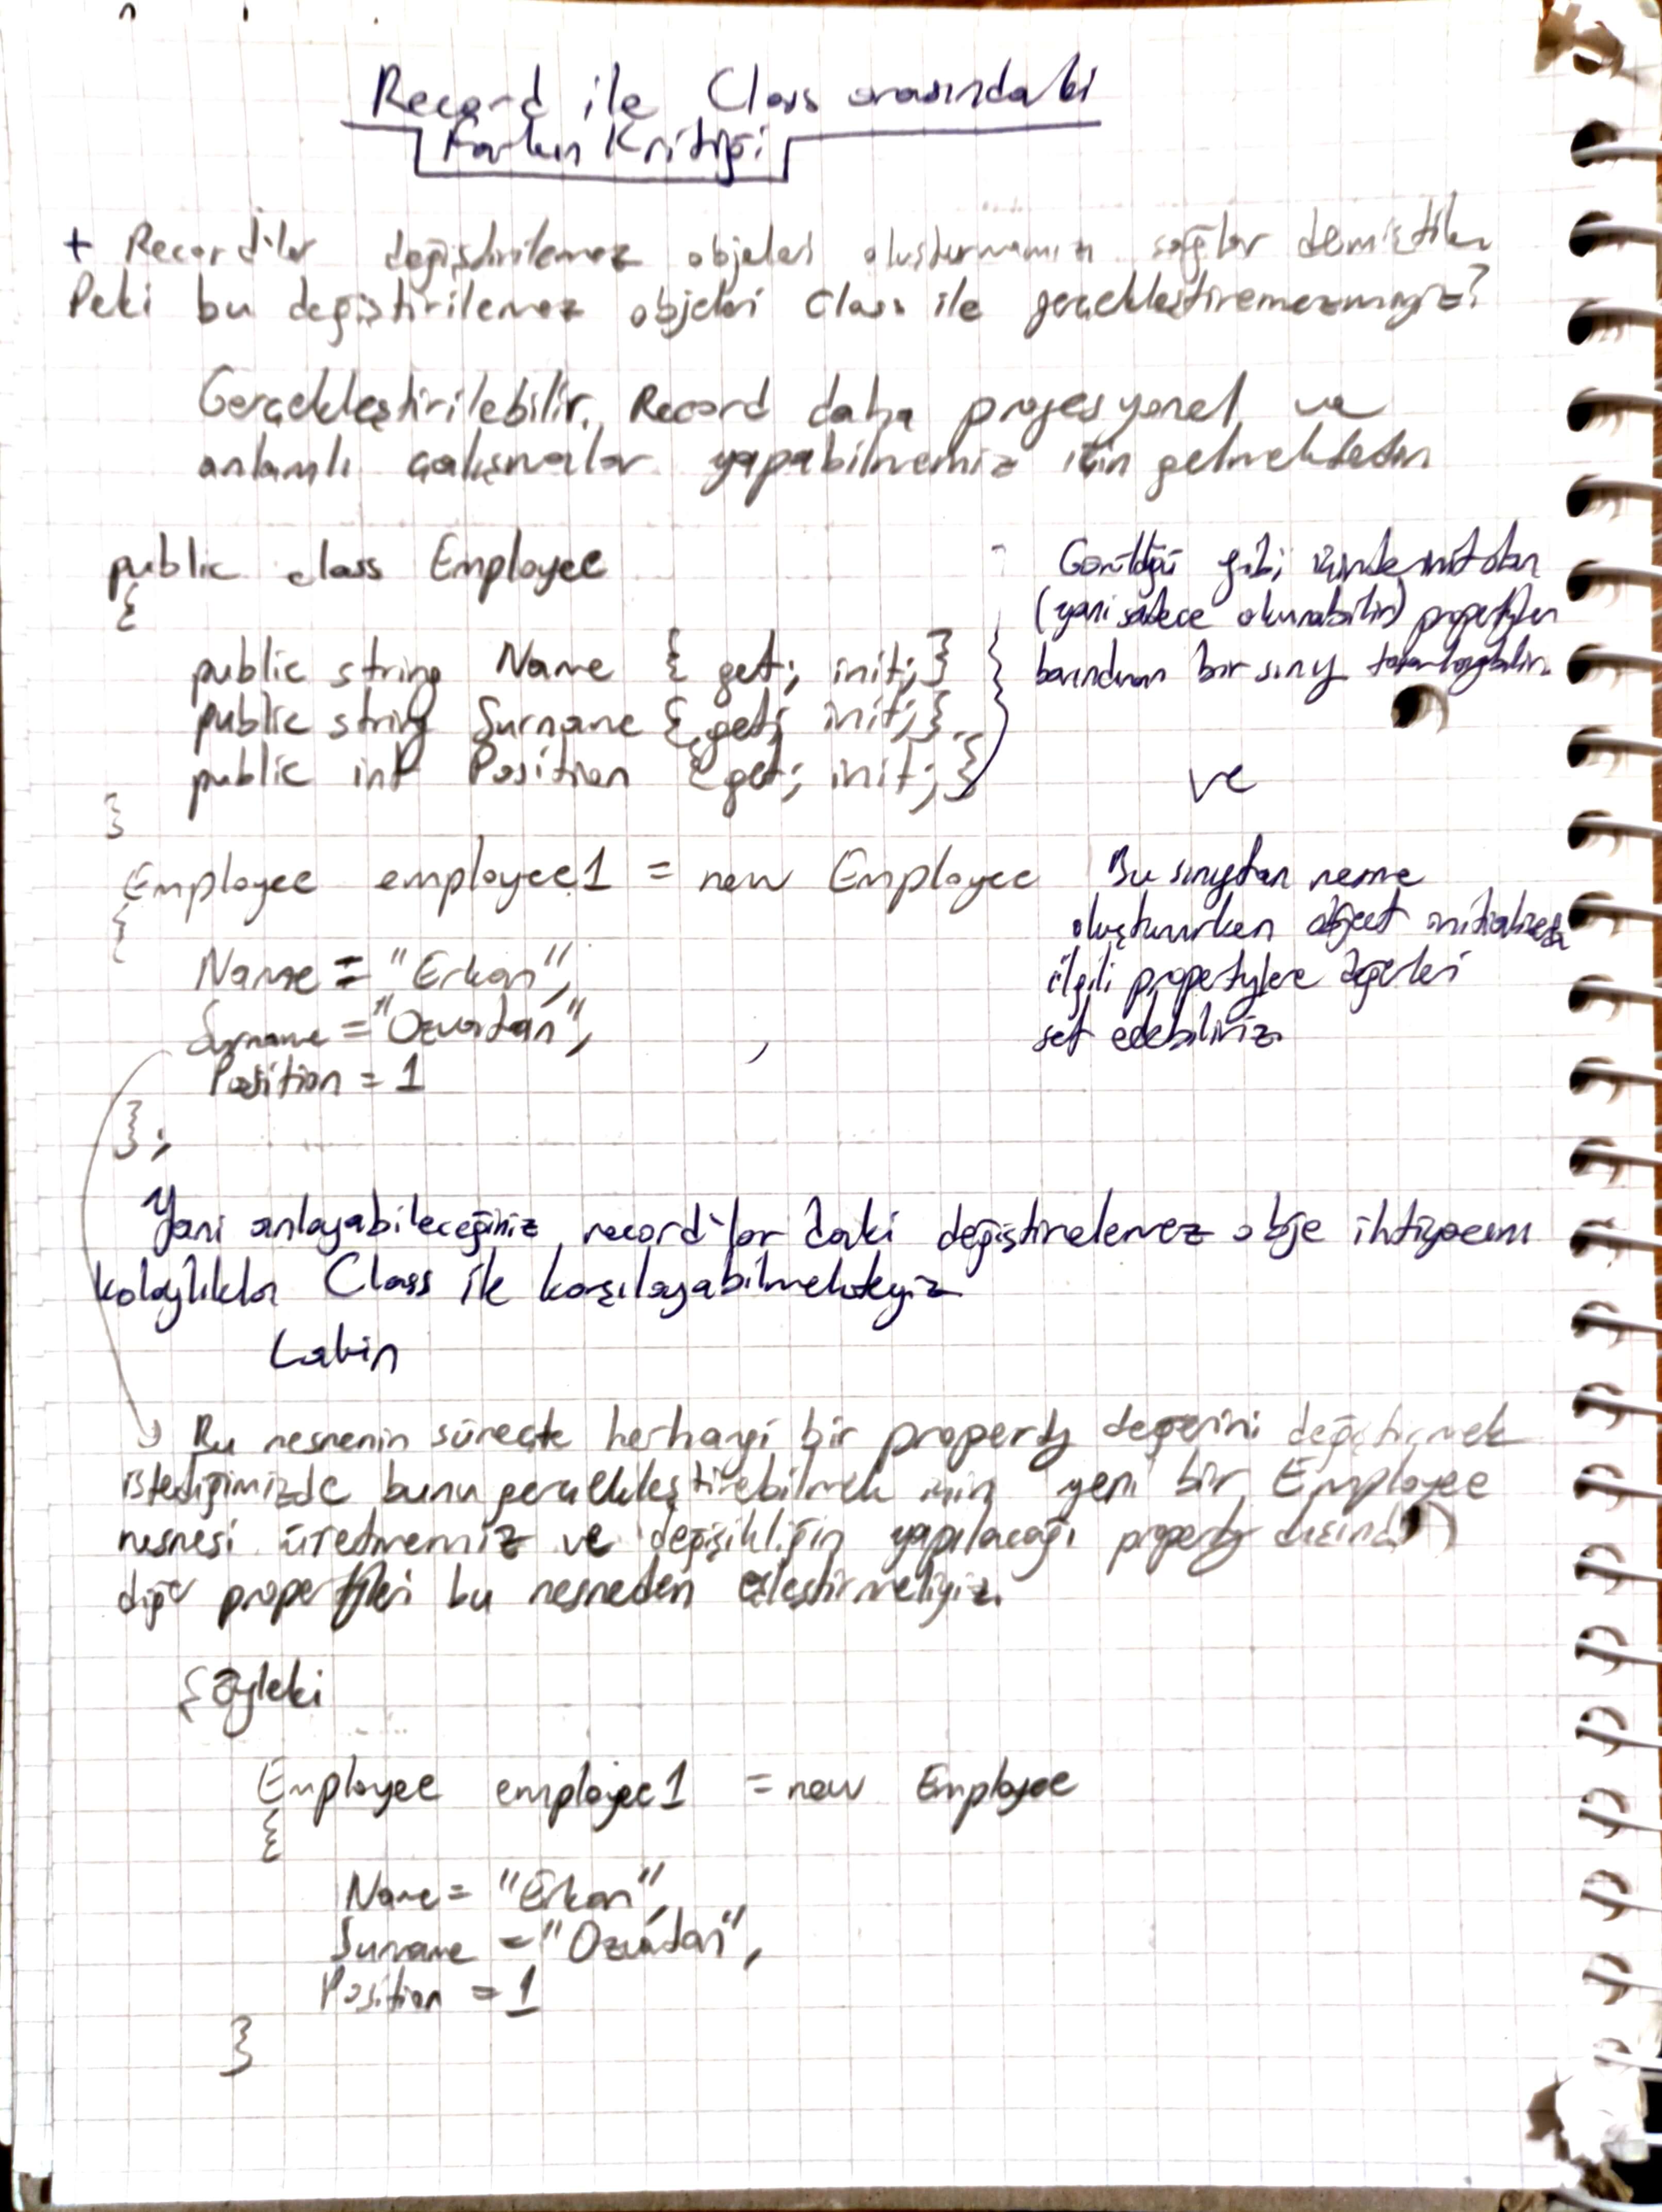 Record ile Class arasındaki
Farkın Kritiği
+ Record'lar değiştirilemez objeler oluşturmamızı sağlar demiştik
Peki bu değiştirilemez objeleri Class ile gerçekleştiremezmiyiz?
Gerçekleştirilebilir. Record daha profesyonel ve
anlamlı çalışmalar yapabilmemiz için gelmektedir
public class Employee
{
public string Name { get; init; }
public string Surname { get; init; }
public int Position { get; init; }
}
Görüldüğü gibi içinde init olan
(yani sadece okunabilir) propertyler
barındıran bir sınıf tasarlayabilir.
ve
Employee employee1 = new Employee
{
Name = "Erkan",
Surname = "Ozvatan",
Position = 1
};
Bu sınıftan nesne
oluştururken object
ilgili propertylere değerleri
set edebiliriz
Yani anlayabileceğiniz record'lar daki değiştirelemez obje ihtiyacını
kolaylıkla Class ile karşılayabilmekteyiz
Lakin
Bu nesnenin süreçte herhangi bir property değerini değiştirmek
istediğimizde bunu gerçekleştirebilmek için yeni bir Employee
nesnesi üretmemiz ve değişikliğin yapılacağı property dışında
diğer propertyleri bu nesneden eşleştirmeliyiz.
Şöyleki
Employee employee1 = new Employee
{
Name = "Erkan",
Surname = "Ozvatan",
Position = 1
}